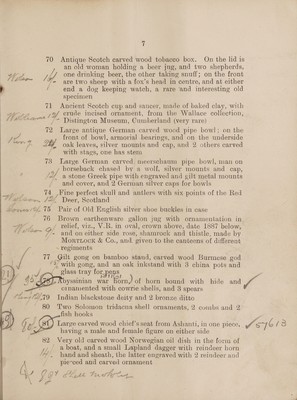 7
70 Antique Scotch carved wood tobacco box. On the lid is
an old woman holding a beer jug, and two shepherds,
one drinking beer, the other taking snuff; on the front
are two sheep with a fox's head in centre, and at either
end a dog keeping watch, a rare and interesting old
specimen
71 Ancient Scotch cup and saucer, made of baked clay, with
crude incised ornament, from the Wallace collection,
Distington Museum, Cumberland (very rare)
72 Large antique German carved wood pipe bowl; on the
front of bowl, armorial bearings, and on the underside
oak leaves, silver mounts and cap, and 2 others carved
with stags, one has stem
73 Large German carved meerschaum pipe bowl, man on
horseback chased by a wolf, silver mounts and cap,
a stone Greek pipe with engraved and gilt metal mounts
and cover, and 2 German silver caps for bowls
74 Fine perfect skull and antlers with six points of the Red
Deer, Scotland
75 Pair of Old English silver shoe buckles in case
76 Brown earthenware gallon jug with ornamentation in
relief, viz., V.R. in oval, crown above, date 1887 below,
and on either side rose, shamrock and thistle, made by
MORTLOCK & Co., and given to the canteens of different
regiments
77 Gilt gong on bamboo stand, carved wood Burmese god
with gong, and an oak inkstand with 3 china pots and
glass tray for pens
78 Abyssinian war horn, of horn bound with hide and
ornamented with cowrie shells, and 3 spears
79 Indian blackstone deity and 2 bronze ditto
80 Two Solomon tridacna shell ornaments, 2 combs and 2
fish hooks
81 Large carved wood chief's seat from Ashanti, in one piece,
having a male and female figure on either side
82 Very old carved wood Norwegian oil dish in the form of
a boat, and a small Lapland dagger with reindeer horn
hand and sheath, the latter engraved with 2 reindeer and
pierced carved ornament